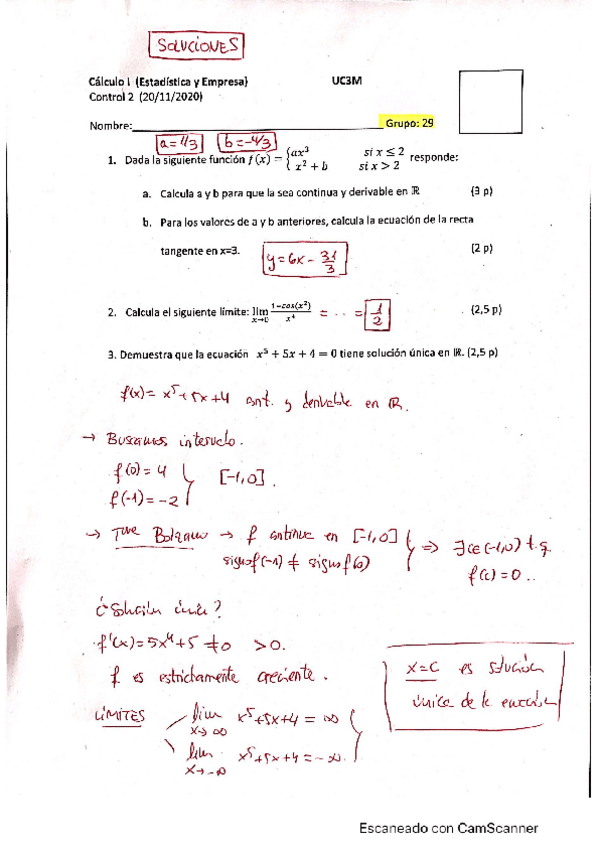 SOLUCIONES
Cálculo I (Estadística y Empresa) UC3M
Control 2 (20/11/2020)
Nombre:________ Grupo: 29
a=4/3 b=-4/3
1. Dada la siguiente función f(x) = { ax³ si x ≤ 2 responde:
x² + b si x > 2
a. Calcula a y b para que la sea continua y derivable en ℝ (3 p)
b. Para los valores de a y b anteriores, calcula la ecuación de la recta
tangente en x=3. (2 p)
y = 6x - 31/3
2. Calcula el siguiente límite: lim x→0 (1-cos(x²))/x⁴ = ... = 1/2 (2,5 p)
3. Demuestra que la ecuación x⁵ + 5x + 4 = 0 tiene solución única en ℝ. (2,5 p)
f(x) = x⁵+5x+4 cont. y derivable en ℝ.
→ Buscamos intervalo.
f(0) = 4
f(-1) = -2 } [-1,0].
→ Tma Bolzano → f continua en [-1,0]
signo f(-1) ≠ signo f(0) } ⇒ ∃ c∈(-1,0) t.q.
f(c)=0..
¿Solución única?
f'(x) = 5x⁴+5 ≠0 >0.
f es estrictamente creciente.
x=c es solución
única de la ecuación
LÍMITES lim x→∞ x⁵+5x+4 = ∞
lim x→-∞ x⁵+5x+4 = -∞.
Escaneado con CamScanner